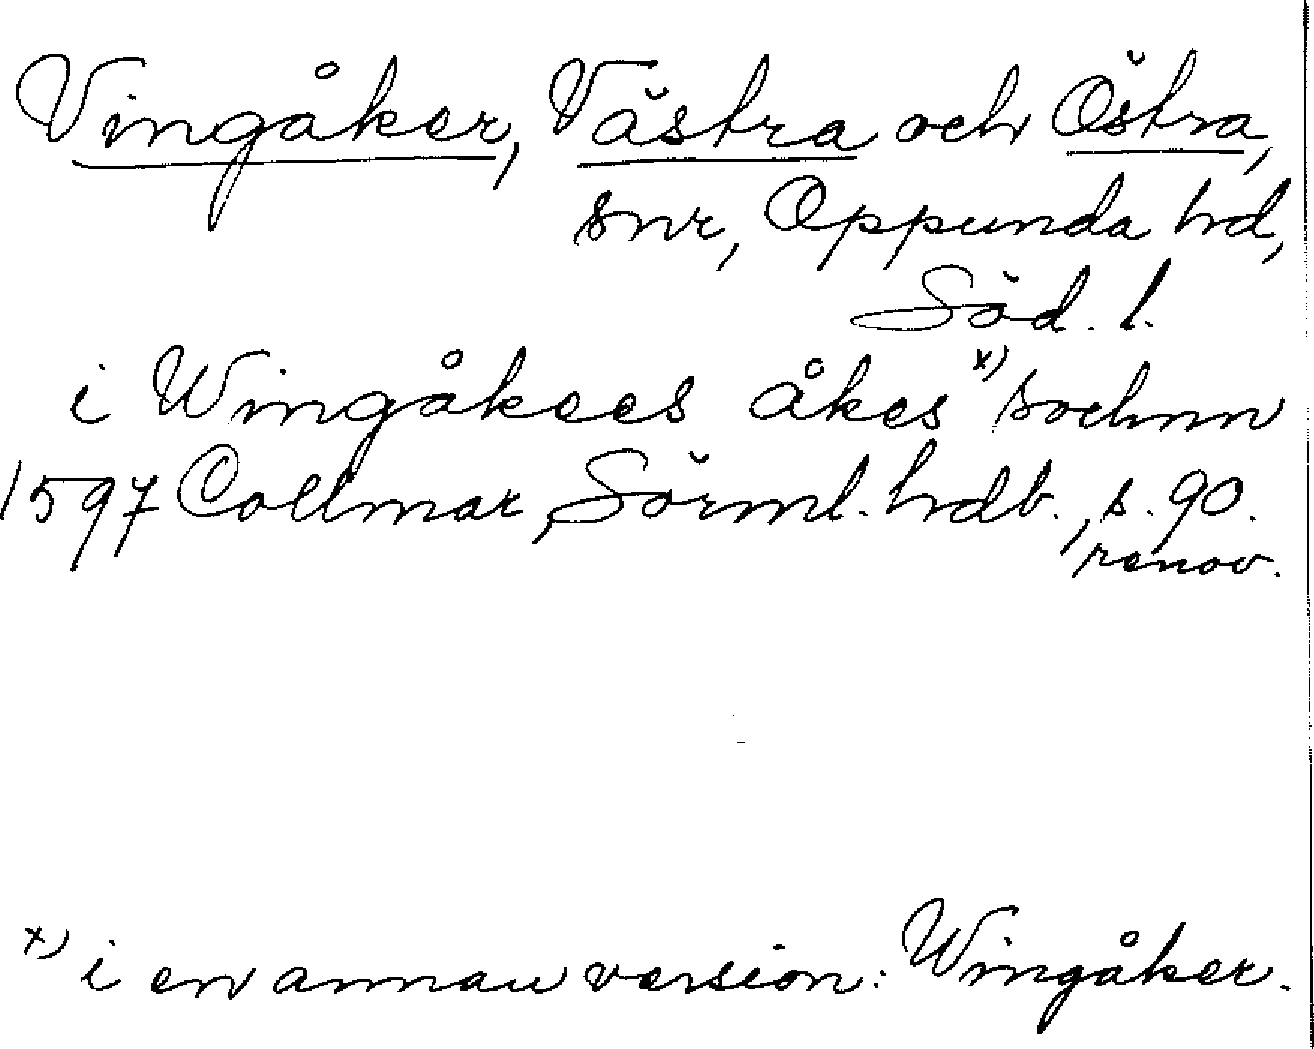 Vingåker, Västra och Östra,
snr, Oppunda hd,
Söd. l.
i Wingåkees åkes x) sochnn
1597 Collmar, Sörml. hdb., s. 90.
renov.
x) i en annan version: Wingåker.